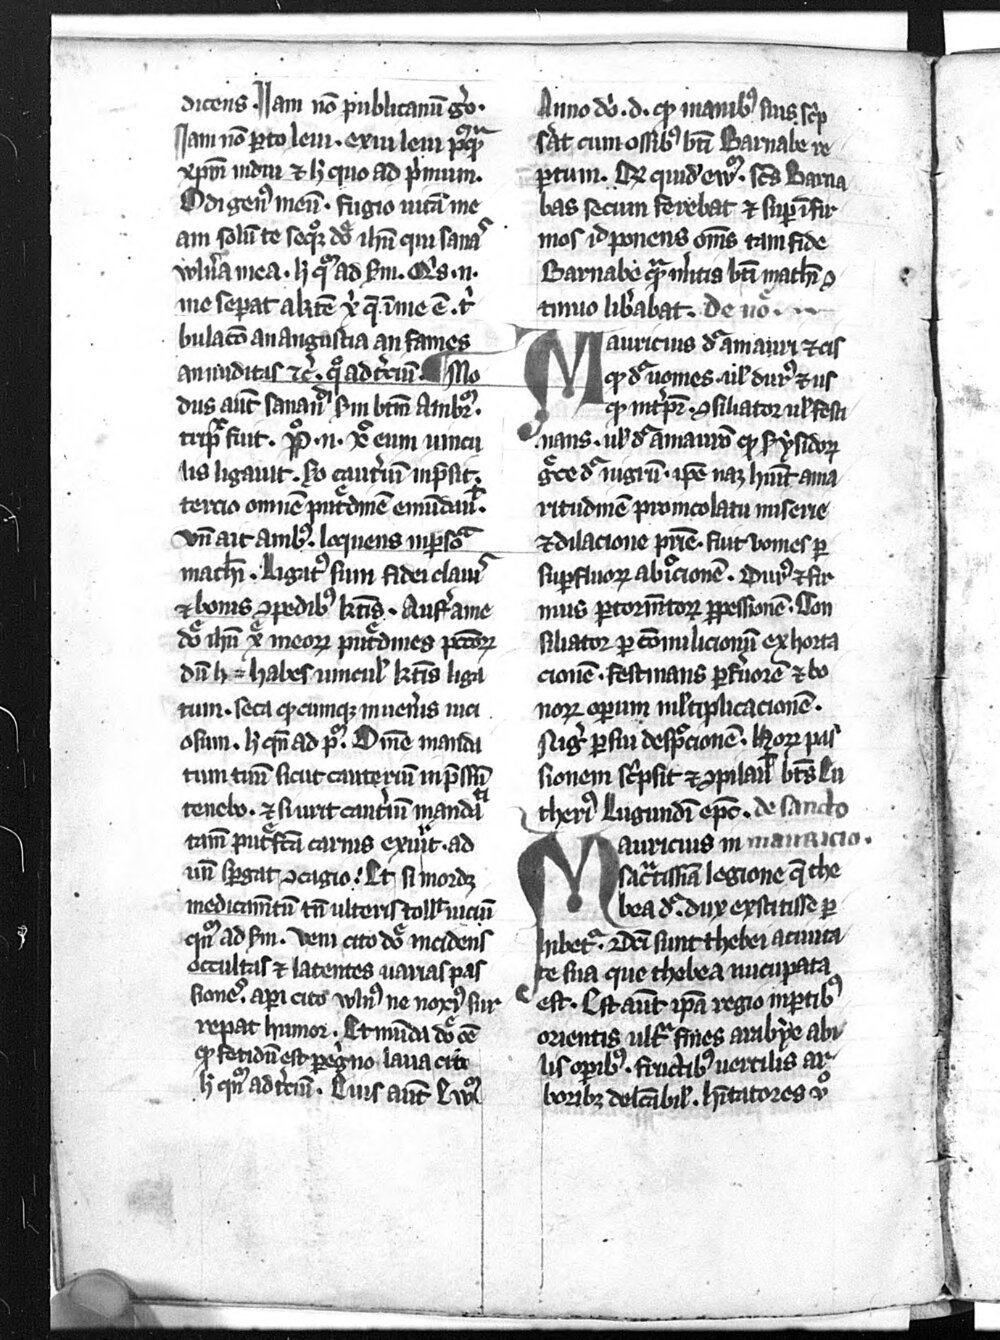 dicens . Iam nō publicanū gͦo .
Iam nō pͦto leui . exui leui pꝰqͣ
xp̄m indui & ħ quo ad pͥmum .
Odi genꝰ meū . fugio uitā me
am solū te seqͦꝛ dn̄e ih̄u qui sanas
vuln̄a mea . ħ qͦ ad sm̄ . Qͥs . n .
me sepat a kͣte xͥ q̄ i me ē . tͥ
bulacō an angustia an fames
an nuditas ⁊c̄ . qͦ ad tͥciū . Mo
dus aūt sanandi sm̄ btm̄ Ambrꝰ .
tripͣ fuit . Pͦ . n . xͦ eum uincu
lis ligauit . so cautͥiū inpͣsit .
tercio omnē putͥdinē emūdauͥ .
Vn̄ ait ambꝰ . loquens in psōa
math̄i . Ligatꝰ sum fidei clauis
& bonis ꝯpedibꝰ kͣtis . Aufer a me
dn̄e ih̄u xͤ meoꝝ putͥdines pctōꝝ
dū h = habes uincul kͣtis liga
tum . seca qͥcumqꝫ inueneris uici
osum . ħ qn̄ ad pͦ . Omē manda
tum tuū sicut cauterium inpͣssū
tenebo . & si urit cautͥiū mandati
tam̄ putͥdā carnis exurit . ad
un̄ spgat ꝯtagio . Et si mordꝫ
medicam̄tū tn̄ ulceris tollͥ uiciū
qn̄ ad sm̄ . Veni cito dn̄e incidens
occultas & latentes uarias pas
siones . api cito vulnꝰ ne noxiꝰ sur
repat humor . Et mūda dn̄e oē
qͥ fetidū est pegͥno laua cro
ħ qn̄ ad tͥciū . Cuis aūt Ewͣ
Anno dn̄i . d . qͥ manibꝰ suis scͥp
sͥat cum ossibꝰ bt̄i Barnabe re
ptum . Qͣ quidͤ ewͣ . scs Barna
bas secum ferebat & sup īfir
mos id ponens om̄s tam fide
Barnabe qͣ mͥitis bt̄i mathei ꝯ
tinuo libͥabat . De noīe
Mauricius dͣ a mauri & cis
qͥ dͣ uomes . ul durꝰ & us
qͥ intͥpr̄ . ꝯsiliator ul festi
nans . ul dͣ a mauron qͥ sͥ ysidoꝝ
gͤce dͣ nigrū . ipē naꝫ hūit ama
ritudinē pro incolatu miserie
& dilacione prīe . fuit uomes p
supfluoꝝ abicionē . Durꝰ & fir
mus p tormt̄oꝝ ppessionē . Con
siliator p cōmilicionū exhorta
cionē . Festinans p feruorē & bo
noꝝ operum mltiplicacionē .
Nigͥ p sui despcionē . Hoꝝ pas
sionem scͥpsit & ꝯpilauit bt̄s Eu
theriꝰ Lugundī epc̄ . de sancto
Mauricius in mauricio .
sācͣtissiā legione q̄ the
bea dͣ . dux exstitisse p
hibetͬ . Dc̄i sunt thebei a ciuita
te sua que thebea nucupata
est . Est aūt ip̄a regio in ptibꝰ
orientis ultͣ fines arabye abū
lis opibꝰ . fructibꝰ uertilis ar
boribꝫ delc̄abilͥ . hītatores vͦ